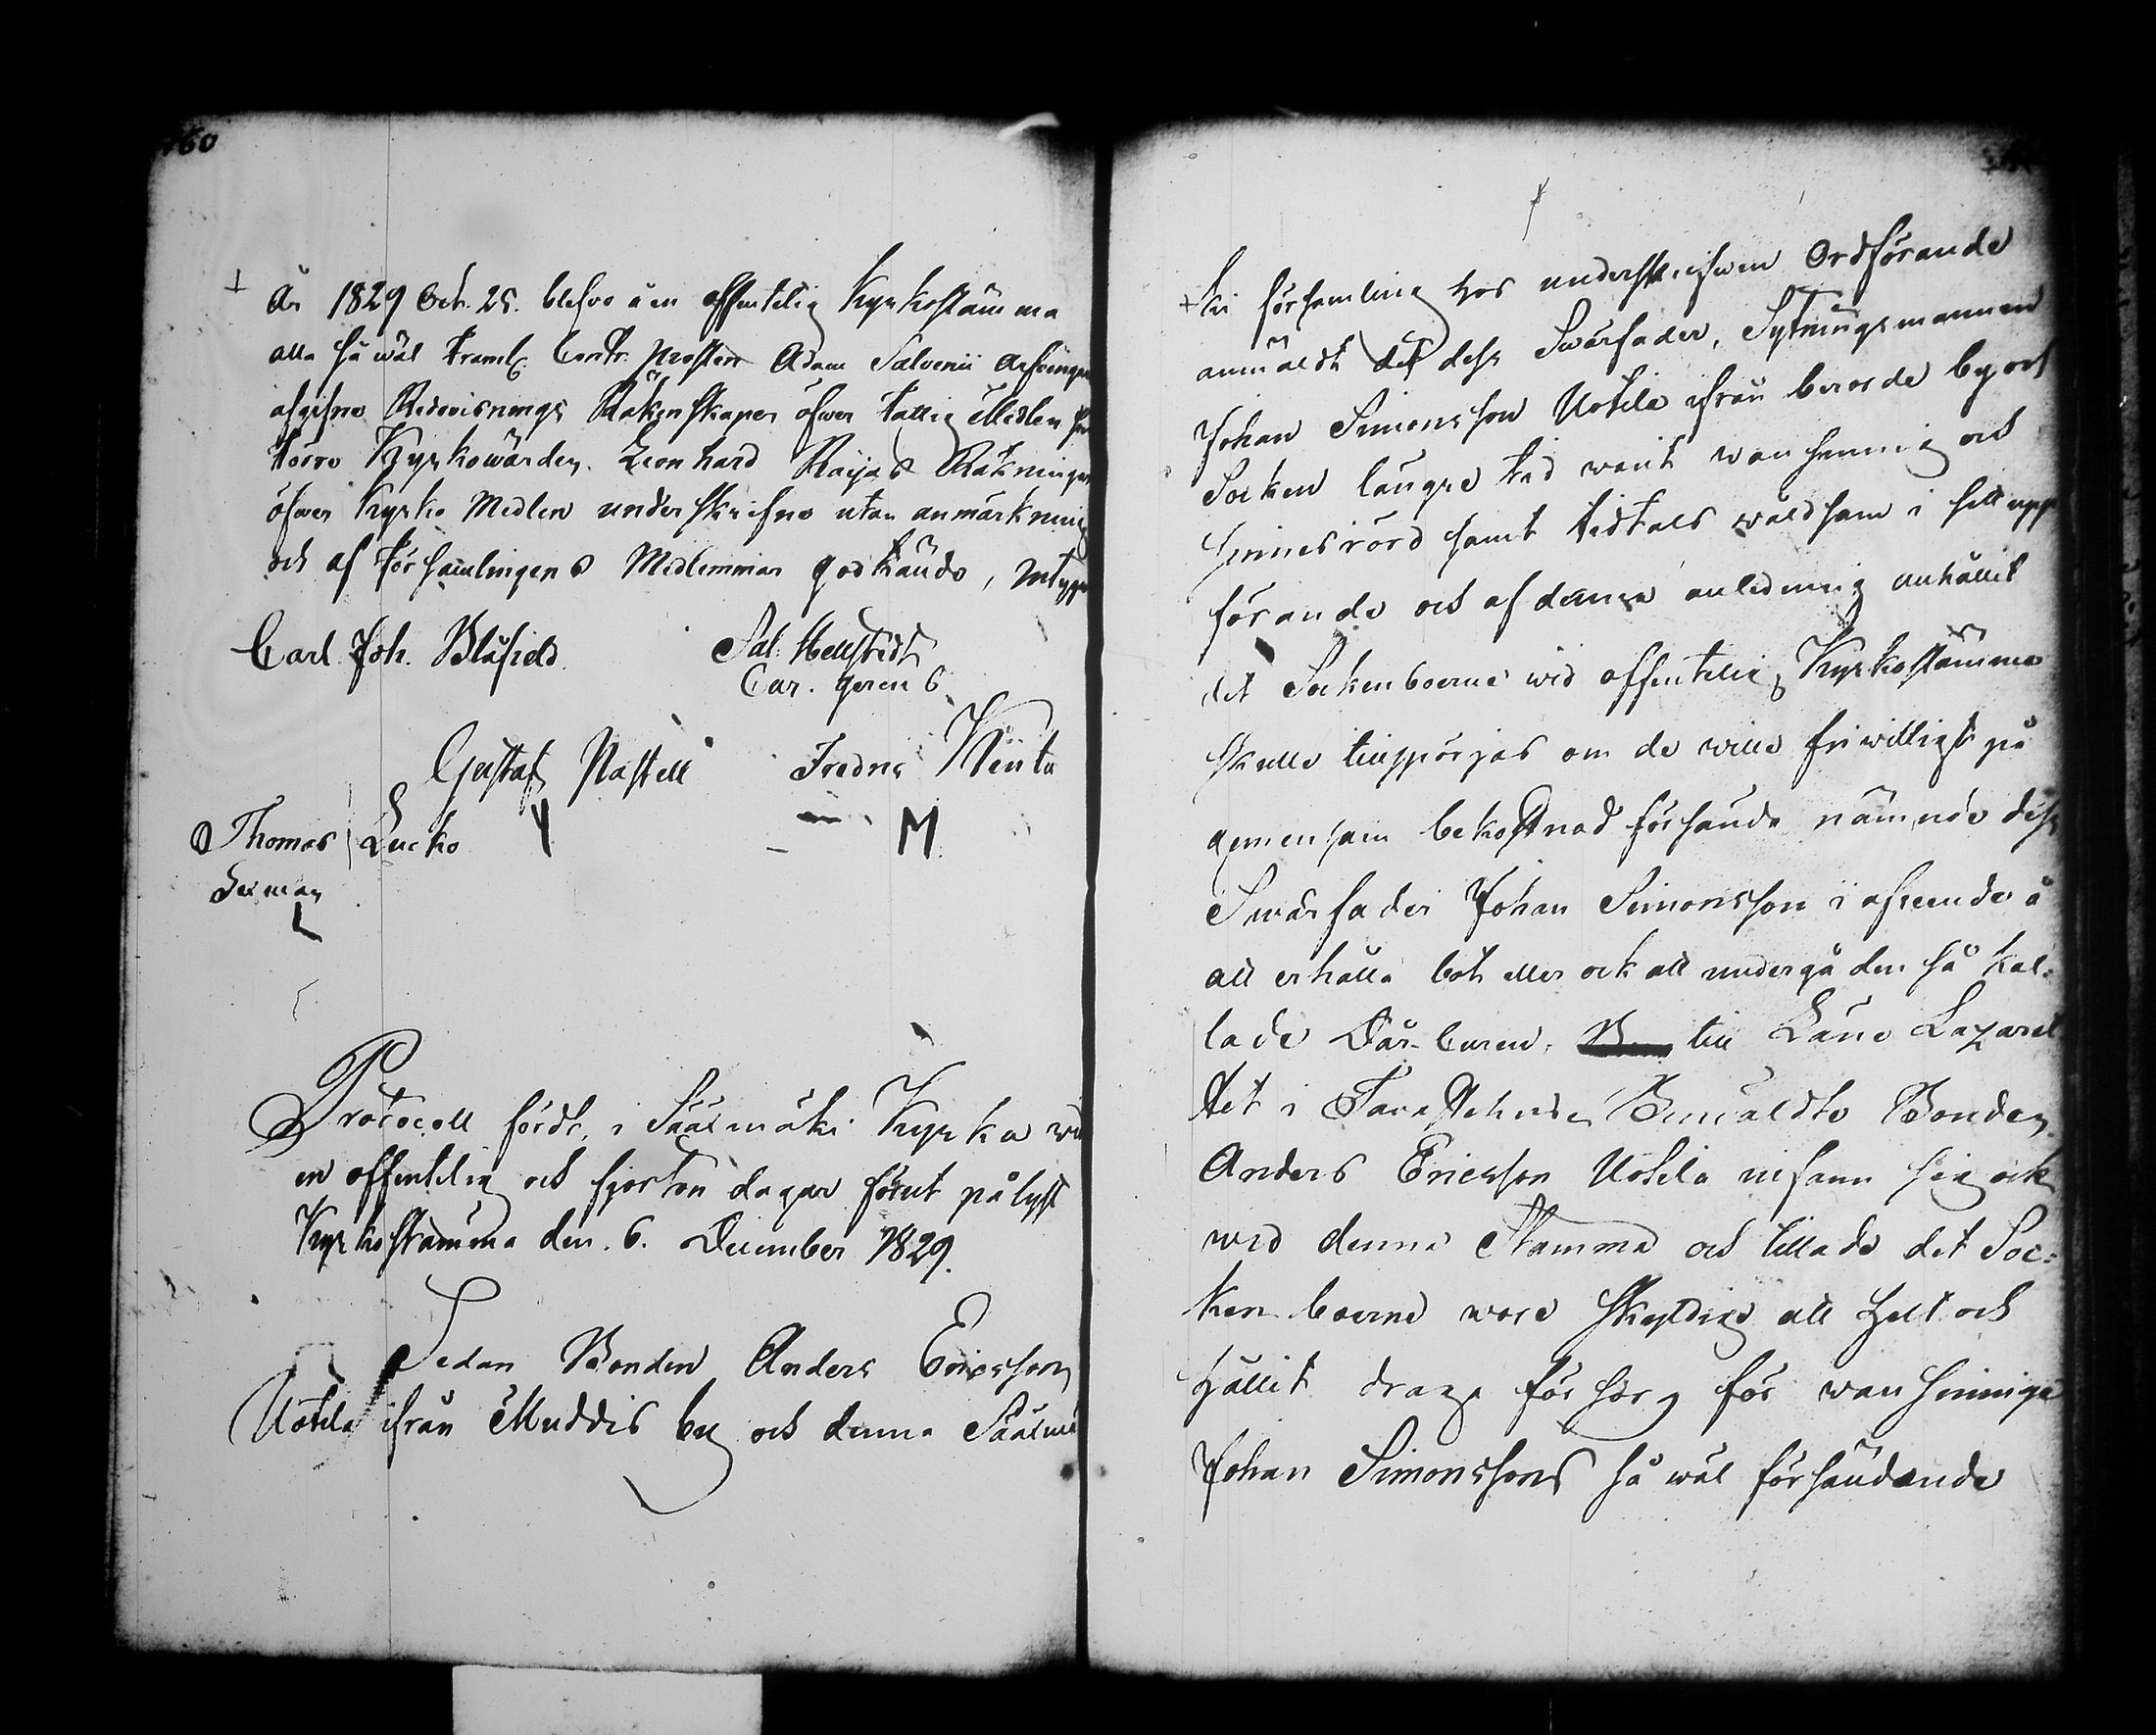 160
År 1829 Oct. 25. blefvo å en offentelig Kyrkostämma
alla så wäl framl. Contr. Prosten Adam Salvenii Arfvingar
afgifne Redovisnings Räkenskaper öfwer Fattig Medlen
Kyrkowärden Leonhard Raijas Räkningar
öfwer Kyrko Medlen underskrifne utan anmärkning
och af Församlingens Medlemmar godkände, intygar
Carl Joh. Blåfield. Sal. Hellstedt
Cur. gerens
Gustaf Nastell Fredric Kiuta
Thomas Lucko M
Sexman
Protocoll fördt i Sääxmäki Kyrka wid
en offentelig och fjorton dagar förut pålyst
Kyrkostämma den 6. December 1829.
Sedan Bonden Anders Ericsson
Uotila ifrån Muddis by och denna Sääxmä
ki församling hos underskrifwen Ordförande
anmäldt det dess Swärfader, Sytningsmannen
Johan Simonsson Uotila ifrån berörde by och
Socken längre tid warit wansinnig och
sinnesrörd samt tidtals wåldsam i sitt upp
förande och af denna anledning anhållit
det Sockenboerne wid offentelig Kyrkostämma
skulle tillspörjas om de wille friwilligt på
gemensam bekostnad försända nämnde dess
Swärfader Johan Simonsson i afseende å
att erhålla bot eller ock att undergå den så kal-
lade Dår-Curen, till Läne Lazaret
tet i Tavastehus; Bemäldte Bonden
Anders Ericsson Uotila infann sig ock
wid denna Stämma och tillade det Soc-
ken boerne wore skyldige att helt och
hållit draga försorg för wansinnige
Johan Simonssons så wäl försändande